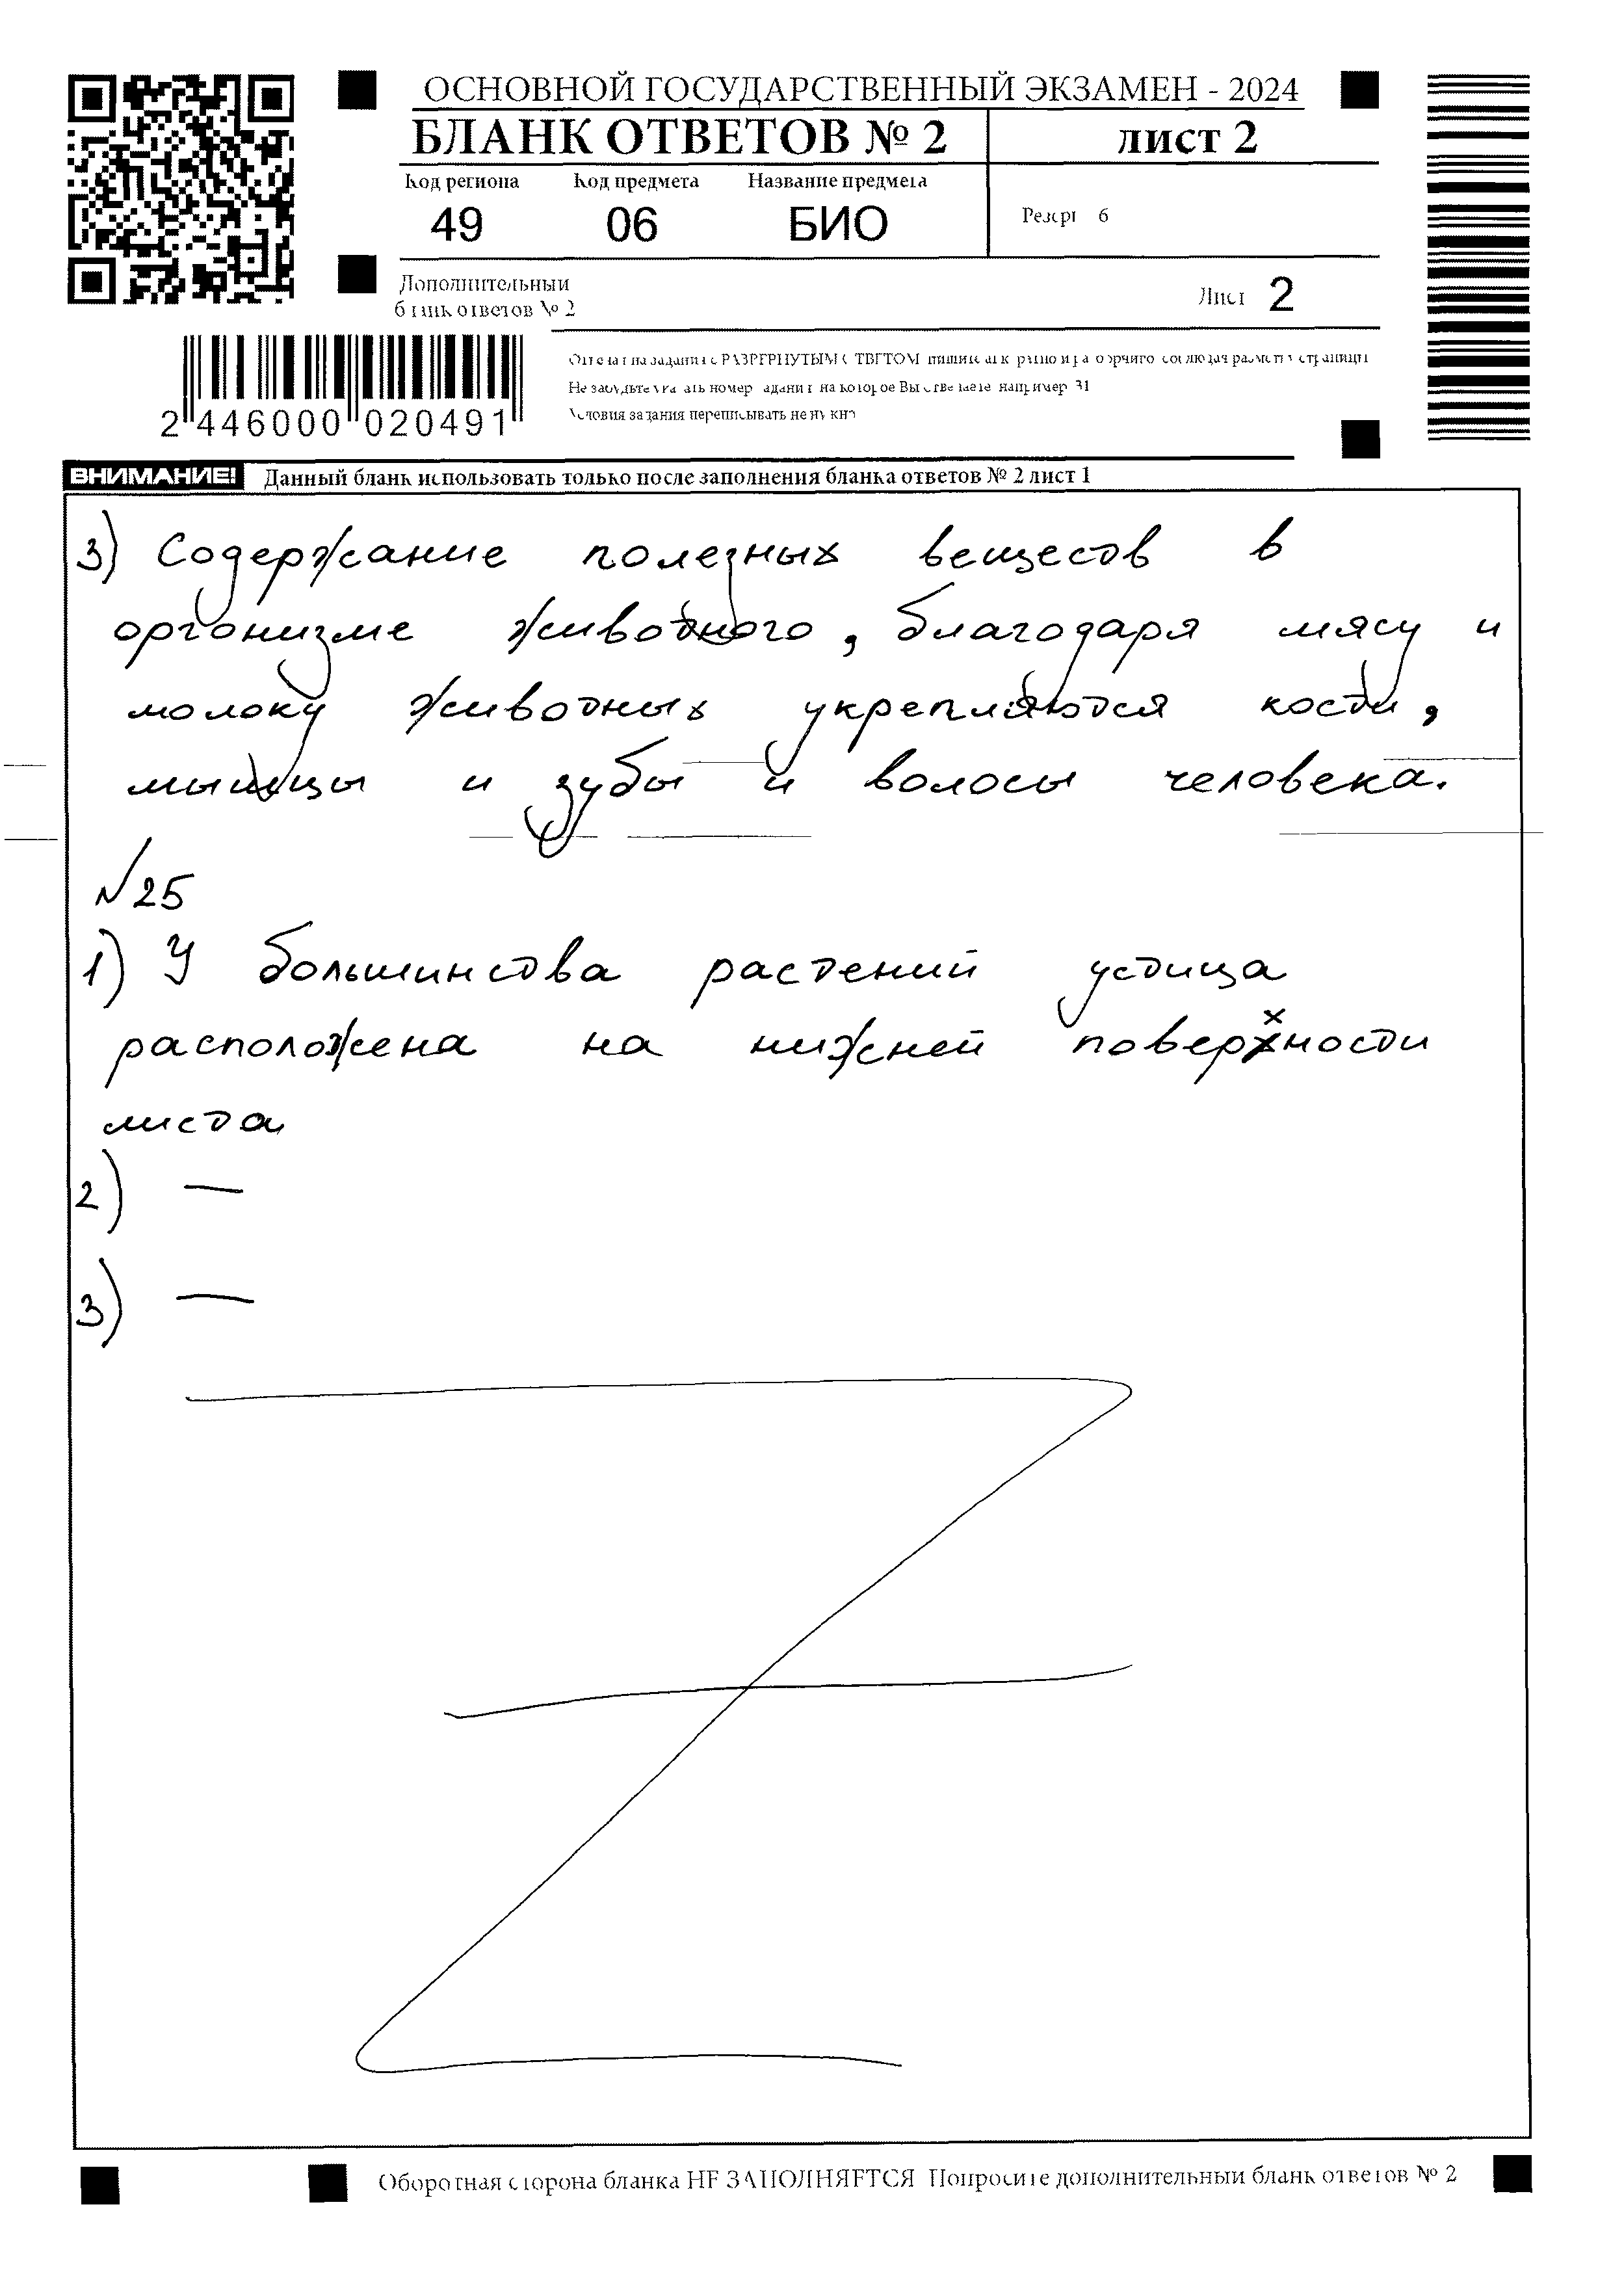 ОСНОВНОЙ ГОСУДАРСТВЕННЫЙ ЭКЗАМЕН - 2024
БЛАНК ОТВЕТОВ № 2
лист 2
Код региона Код предмета Название предмета
49 06 БИО
Резерв 6
Дополнительный
бланк ответов № 2
Лист 2
2 446000 020491
Ответы на задания с РАЗВЕРНУТЫМ ОТВЕТОМ пишите аккуратно и разборчиво соблюдая разметку страницы
Не забудьте указать номер задания на которое Вы отвечаете например 31
Условия задания переписывать не нужно
ВНИМАНИЕ! Данный бланк использовать только после заполнения бланка ответов № 2 лист 1
3) Содержание полезных вещесов в
организме животного, благодаря мясу и
молоку животных укрепляются кости,
мышцы и зубы и волосы человека.
№25
1) У большинсtва растений устица
расположена на нижней поверхности
листа
2) —
3) —
Оборотная сторона бланка НЕ ЗАПОЛНЯЕТСЯ Попросите дополнительный бланк ответов № 2